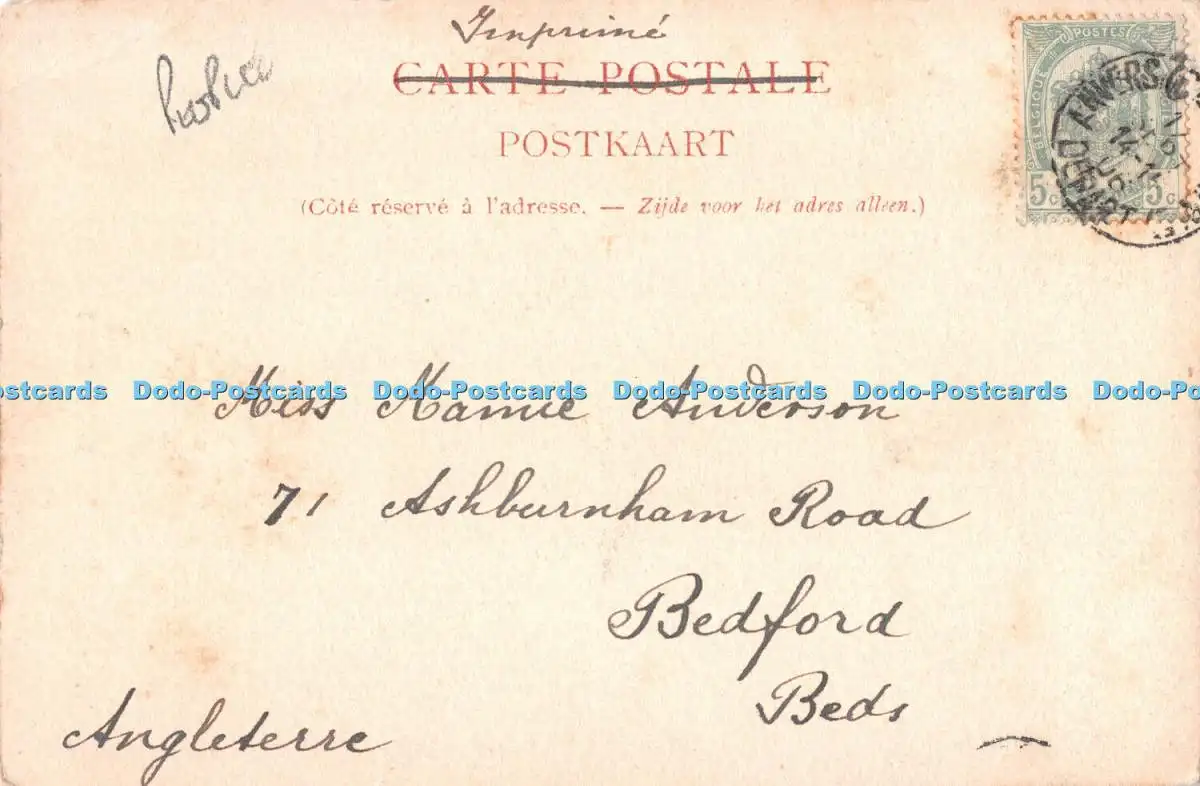 Imprimé
CARTE POSTALE
POSTKAART
(Côté réservé à l'adresse. — Zijde voor het adres alleen.)
POSTES
BELGIQUE
5c 5c
ANVERS
DEPART
Dodo-Postcards Dodo-Postcards Dodo-Postcards Dodo-Postcards
Miss Mamie Anderson
71 Ashburnham Road
Bedford
Beds
Angleterre